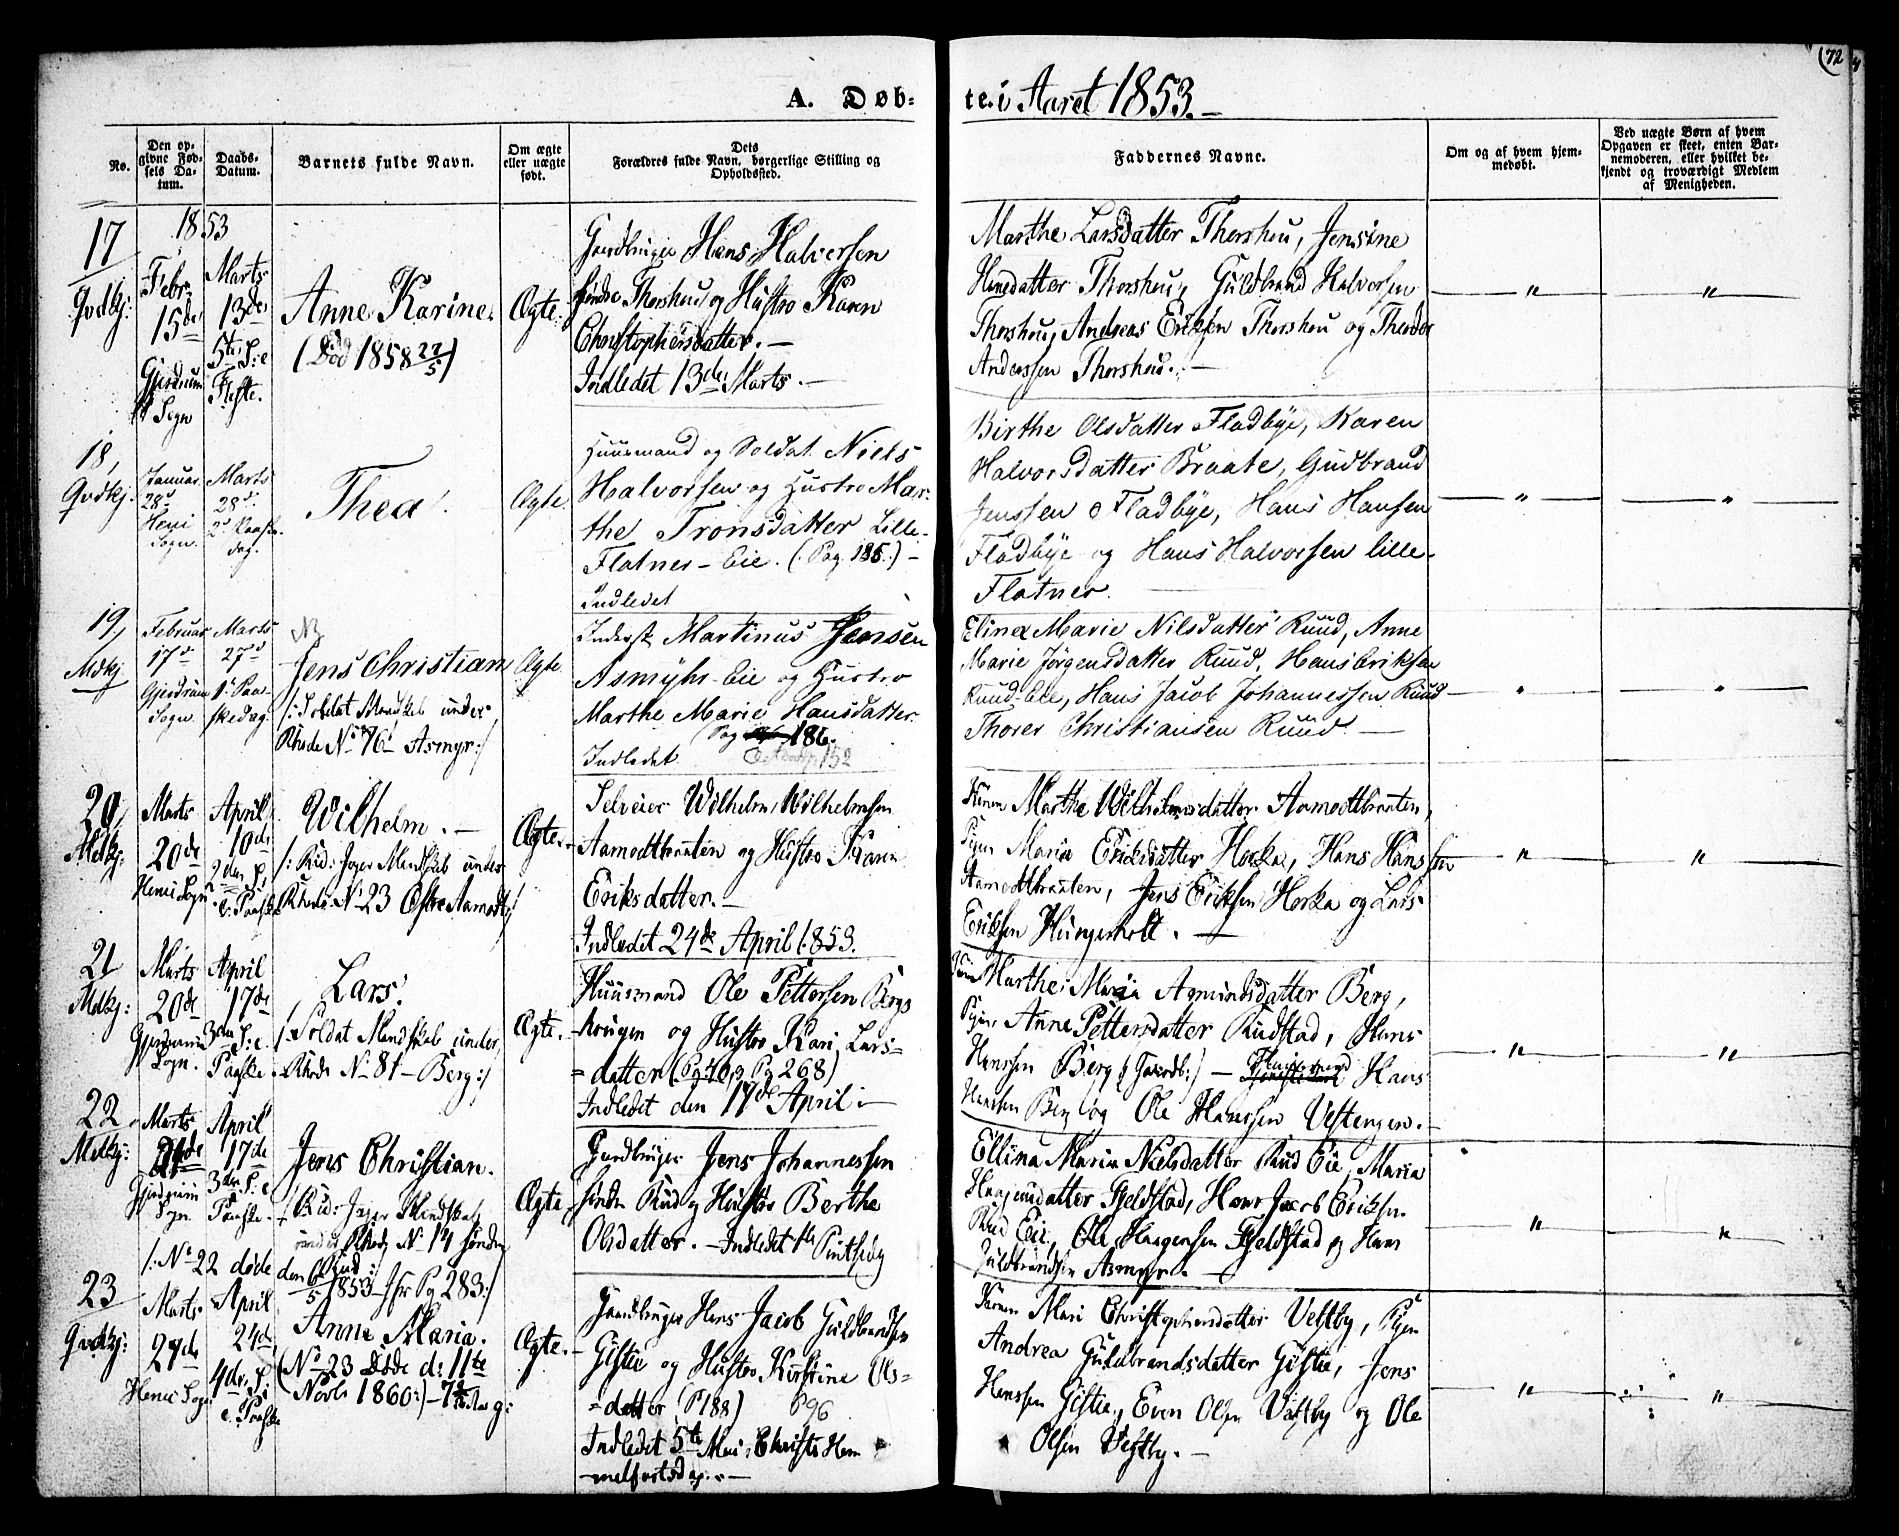 72
A. Døb-
te. i Aaret 1853.
No.
Den op-
givne Fød-
sels Da-
tum.
Daabs-
Datum.
Barnets fulde Navn.
Om ægte
eller uægte
født.
Dets
Forældres fulde Navn, borgerlige Stilling og
Opholdssted.
Faddernes Navne.
Om og af hvem hjem-
medøbt.
Ved uægte Børn af hvem
Opgaven er skeet, enten Bar-
nemoderen, eller hvilket be-
kjendt og troværdigt Medlem
af Menigheden.
1853
17
Qvdkj:
Febr.
15de
Gjerdrum
Sogn
Marts
13de
5te S: e
Faste.
Anne Karine.
(Død 1858 27/5)
Ægte.
Gaardbruger Hans Halversen
Thorshou og Hustro Karen
Christophersdatter. —
Indledet 13de Marts. —
Marthe Larsdatter Thorshou, Jensine
Hansdatter Thorshou, Guldbrand Halvorsen
Thorshou, Andreas Eriksen Thorshou og Theodor
Andersen Thorshou. —
"
"
18,
Qvdkj.
Januar
28d
Heni
Sogn.
Marts
28d
2d Paaske-
dag.
Thea.
Ægte.
Huusmand og Soldat Niels
Halvorsen og Hustro Mar-
the Tronsdatter Lille-
Flatner-Eie. (Pag. 185.) —
Indledet
Birthe Olsdatter Fladbye, Karen
Halvorsdatter Braate, Gudbrand
Jenssen Fladbye, Hans Hansen
Fladbye og Hans Halvorsen lille-
Flatner.
"
"
19,
Mdkj
Februar
17d
Gjerdrum
Sogn.
Marts
27d
1d Paa-
skedag.
Jens Christian
/: Soldat Mandskab under
Rhode No 76 Asmyr :/
Ægte
Inderst Martinus Jensen
Asmyhr-Eie og Hustro
Marthe Marie Hansdatter.
Pag 186.
Indledet
Elina Marie Nilsdatter Ruud, Anne
Marie Jörgensdatter Ruud, Hans Eriksen
Ruud-Eie, Hans Jacob Johannessen Ruud
Thorer Christiansen Ruud. —
"
"
20,
Mdkj:
Marts
20de
Heni Sogn
April
10de
2den S.
e. Paaske
Wilhelm. —
/: Rid: Jæger Mandskab under
Rhode No 23 Østre Aamodt :/
Ægte.
Selveier Wilhelm Wilhelmsen
Aamodtbraaten og Hustro Karen
Eriksdatter. —
Indledet 24de April 1853.
Konen Marthe Wilhelmsdatter Aamodtbraaten,
Pigen Maria Eriksdatter Horka, Hans Hanssen
Aamodtbraaten, Jens Eriksen Horka og Lars
Eriksen Hungerholt. —
"
"
21
Mdkj:
Marts
20de
Gjerdrum
Sogn.
April
17de
3den S: e.
Paaske.
Lars.
/: Soldat Mandskab under
Rhode No 81 — Berg :/
Ægte.
Huusmand Ole Pettersen Bergs
hougen og Hustro Kari Lars=
=datter (Pg: 103 Pg 268)
Indledet den 17de April —
Konen Marthe Maria Asmundsdatter Berg,
Pigen Anne Pettersdatter Rudstad, Hans
Hanssen Berg (Gaardb:) — Hans
Hansen Berg og Ole Hanssen Vestengen. —
"
"
22
Mdkj:
Marts
Gjerdrum
Sogn
April
17de
3den S: e
Paaske.
Jens Christian.
/: Rid: Jæger Mandskab
under Rhode No 14 søndre
Rud :/
/: No 22 døde den 6/5 1853 Jfr Pg 283 :/
Ægte
Gaardbruger Jens Johannessen
søndre Rud og Hustro Berthe
Olsdatter. — Indledet 1ste Pintsedag
Ellina Maria Nielsdatter Rud Eie, Maria
Haagensdatter Fjeldstad, Hans Jacob Eriksen
Rud Eie, Ole Haagensen Fjeldstad og Hans
Guldbrandsen Asmyr. —
"
"
23
Qvdkj:
Marts
27de
Heni Sogn
April
24de
4de S:
e. Paaske
Anne Maria.
(No 23 Døde d: 11te
Novbr 1860:)
Ægte.
Gaardbruger Hans Jacob Guldbrandsen
Gistie og Hustro Kirstine Ols=
=datter (P 188) P 96
Indledet 5te Mai, Christi Him
melfartsdag. —
Konen Mari Christophersdatter Vestby, Pigen
Andrea Guldbrandsdatter Gistie, Jens
Hanssen Gistie, Even Olsen Vestby og Ole
Olsen Vestby. —
"
"